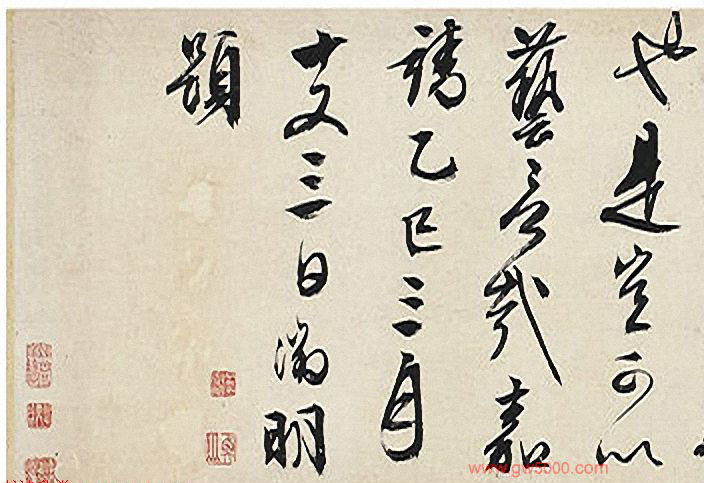 也是豈可以
藝言哉嘉
靖乙巳三月
十又三日徵明
題
www.gw5000.com